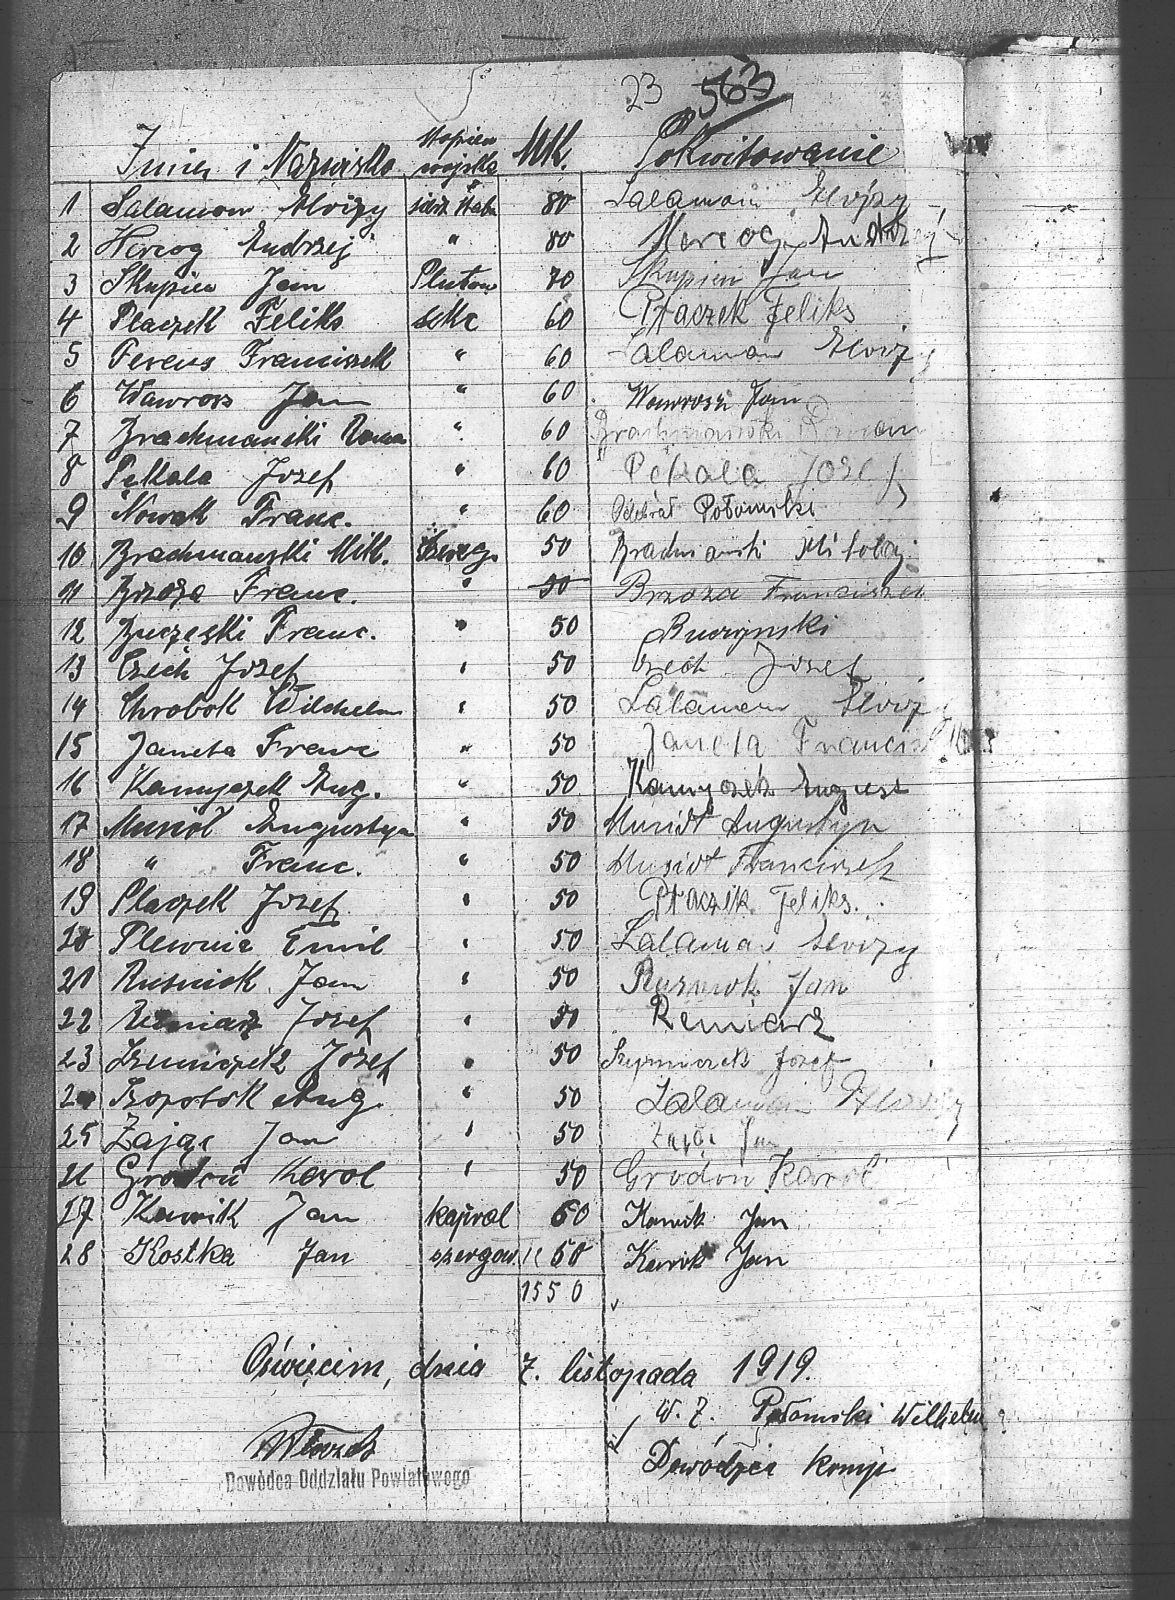 23 563
Imię i Nazwisko Stopień wojska MK. Pokwitowanie
1 Salamon Alojzy sierż. sztab. 80 Salamon Alojzy
2 Hercog Andrzej " 80 Hercog Andrzej
3 Skupień Jan Pluton 70 Skupień Jan
4 Płaczek Feliks szke 60 Ptaczek Feliks
5 Franciszek " 60 Salamon Alojzy
6 Wawrosz Jan " 60 Wawrosz Jan
7 Brachmański Roman " 60 Brachmański Roman
8 Pękala Józef " 60 Pękala Józef
9 Nowak Franc. " 60 Odebrał Połomski
10 Brachmański Mik. Szereg. 50 Brachmański Mikołaj
11 Brzoza Franc. " 50 Brzoza Franciszek
12 Franc. " 50 Buczynski
13 Czech Józef " 50 Czech Józef
14 Chrobok Wilchelm " 50 Salamon Alojzy
15 Janeta Franc " 50 Janeta Francisz
16 Kamyczek Aug. " 50 Kamyczek August
17 Musioł Augustyn " 50 Musioł Augustyn
18 " Franc. " 50 Musioł Franciszek
19 Płaczek Józef " 50 Ptaczek Feliks.
20 Plewnia Emil " 50 Salamon Alojzy
21 Rusniok Jan " 50 Rusniok Jan
22 Remiarz Józef " 50 Remiarz
23 Józef " 50 Józef
2 Aug. " 50 Salamon Alojzy
25 Zając Jan " 50 Zając Jan
26 Grodoń Karol " 50 Grodon Karol
27 Kawik Jan kapral 60 Kawik Jan
28 Kostka Jan szergow. 50 Kawik Jan
1550
Oświęcim, dnia 7. listopada 1919.
W. Z. Połomski Wilhelm
Dowódzca komp.
Dowódca Oddziału Powiatowego